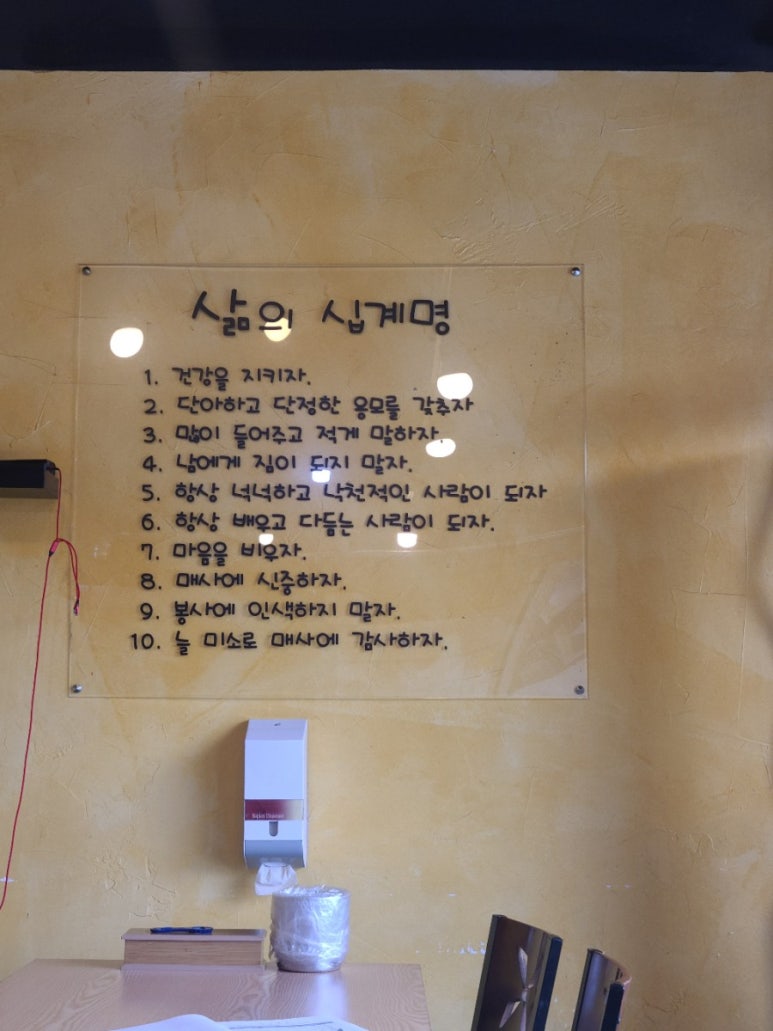 삶의 십계명
1. 건강을 지키자.
2. 단아하고 단정한 용모를 갖추자
3. 많이 들어주고 적게 말하자.
4. 남에게 짐이 되지 말자.
5. 항상 넉넉하고 낙천적인 사람이 되자
6. 항상 배우고 다듬는 사람이 되자.
7. 마음을 비우자.
8. 매사에 신중하자.
9. 봉사에 인색하지 말자.
10. 늘 미소로 매사에 감사하자.